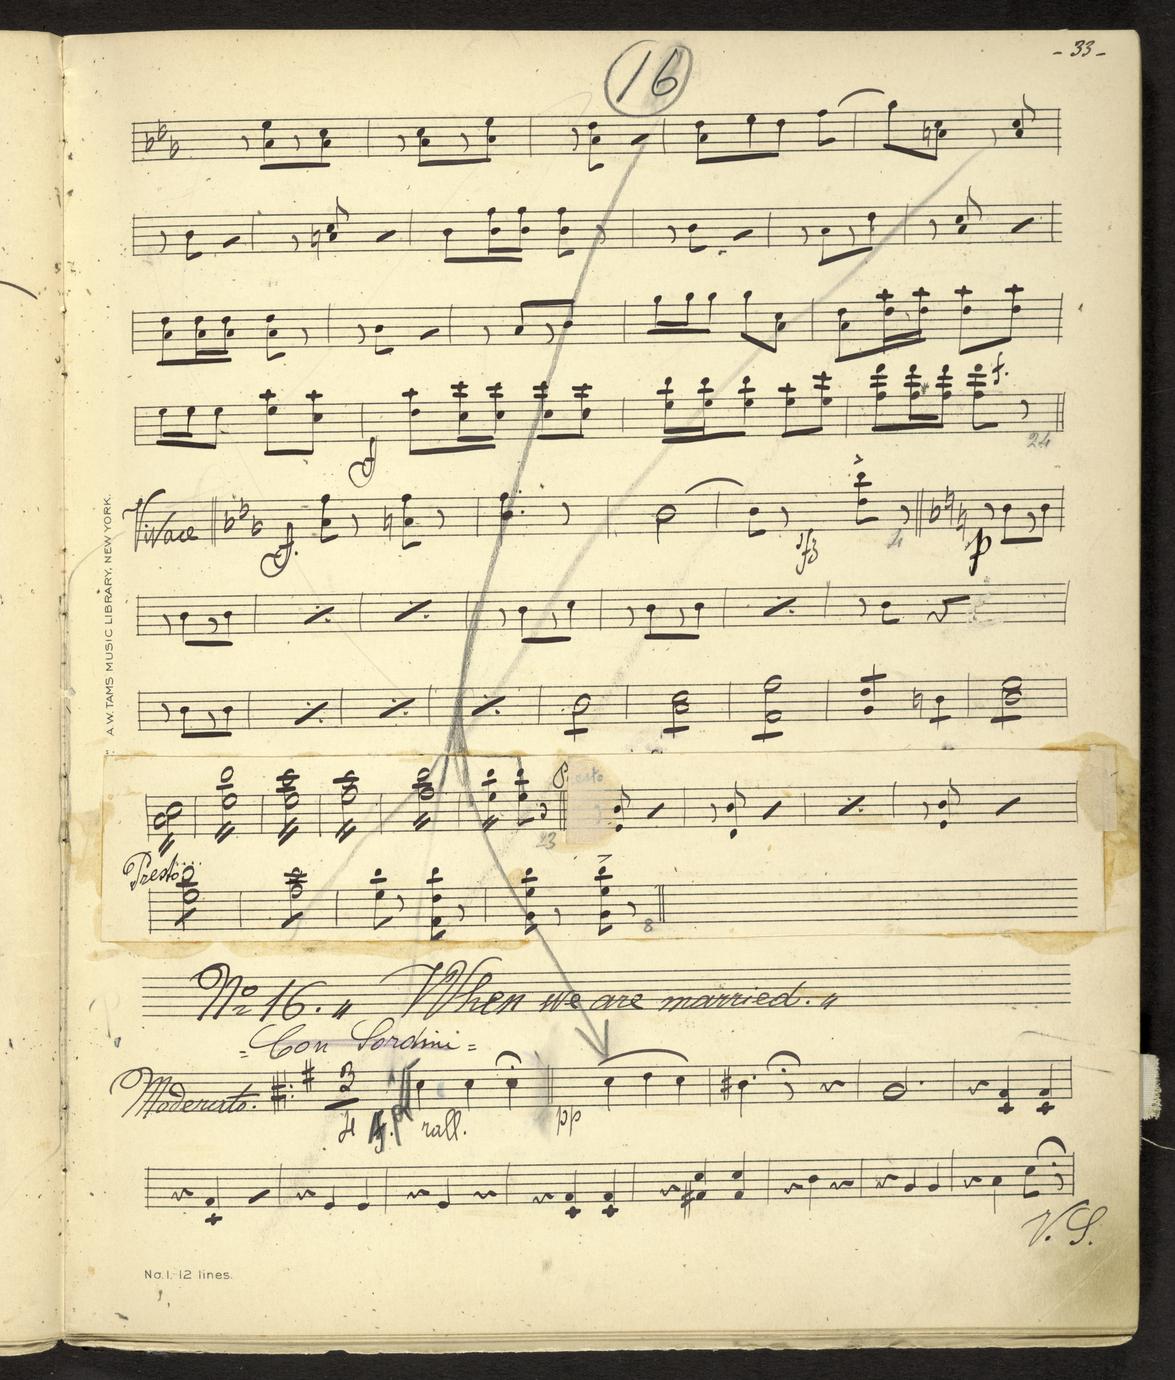 - 33 -
16
f.
f
24
Vivace f. sfz 4 p
A.W. TAMS MUSIC LIBRARY, NEW YORK.
23
Presto
8
No 16. „ When we are married. „
= Con Sordini =
Moderato. 3 2
rall. pp
V. S.
No. 1. 12 lines.